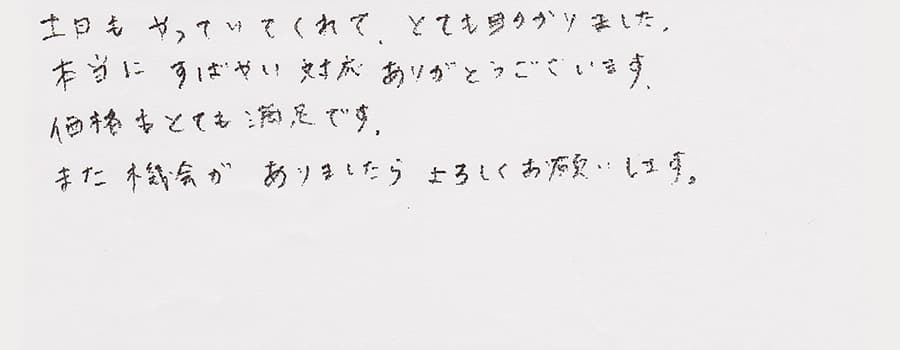 土日もやっていてくれて、とても助かりました。
本当に すばやい 対応 ありがとうございます。
価格もとても満足です。
また機会が ありましたら よろしくお願いします。